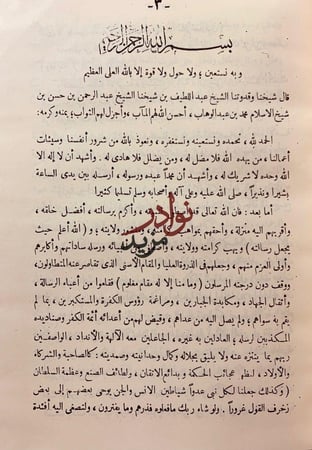 — ٣ —
بسم الله الرحمن الرحيم
وبه نستعين ؛ ولا حول ولا قوة إلا بالله العلى العظيم
قال شيخنا وقدوتنا الشيخ عبد اللطيف بن شيخنا الشيخ عبد الرحمن بن حسن بن
شيخ الاسلام محمد بن عبد الوهاب ، أحسن الله لهم المآب ، وأجزل لهم الثواب ؛ بمنه وكرمه :
الحمد لله ، نحمده ونستعينه ونستغفره ، ونعوذ بالله من شرور أنفسنا وسيئات
أعمالنا ، من يهده الله فلا مضل له ، ومن يضلل فلا هادى له . وأشهد أن لا إله إلا الله
وحده لا شريك له ، وأشهد أن محمداً عبده ورسوله ، أرسله بين يدى الساعة
بشيرا ونذيراً ، صلى الله عليه وعلى آله وأصحابه وسلم تسليما كثيرا
أما بعد : فان الله تعالى وأكرم برسالته ، أفضل خلقه ،
وأقربهم اليه منزلة ، وأحقهم بمواهبه وولايته ، و ( الله أعلم حيث
يجعل رسالته ) ويهب كرامته وولايته ورسله ساداتهم وأكابرهم
وأولى العزم منهم ، وجعلهم فى الذروة العليا والمقام الأسنى الذى تقاصر عنه المتطاولون ،
ووقف دون درجته المرسلون ( وما منا إلا له مقام معلوم ) فقاموا من أعباء الرسالة ،
وأثقال الجهاد ، ومكابدة الجبارين ، ومراغمة رؤوس الكفرة والمستكبرين ، بما لم
يقم به سواهم ؛ ولم يصل اليه من عداهم ، وقيض لهم من أعدائه أئمة الكفر وصناديده
المكذبين لرسله ؛ العادلين به غيره ، الجاعلين معه الآلهة والأنداد ، الواصفين
ربهم بما يتنزه عنه ولا يليق بجلاله وكمال وحدانيته وصمديته ؛ كالصاحبة والشركاء
والأولاد ، لتظهر عجائب الحكمة وبدائع الاتقان ، ولطائف الصنع وعظمة السلطان
( وكذلك جعلنا لكل نبى عدوا شياطين الانس والجن يوحى بعضهم إلى بعض
زخرف القول غروراً . ولو شاء ربك ما فعلوه فذرهم وما يفترون ، ولتصغى اليه أفئدة
نوادر